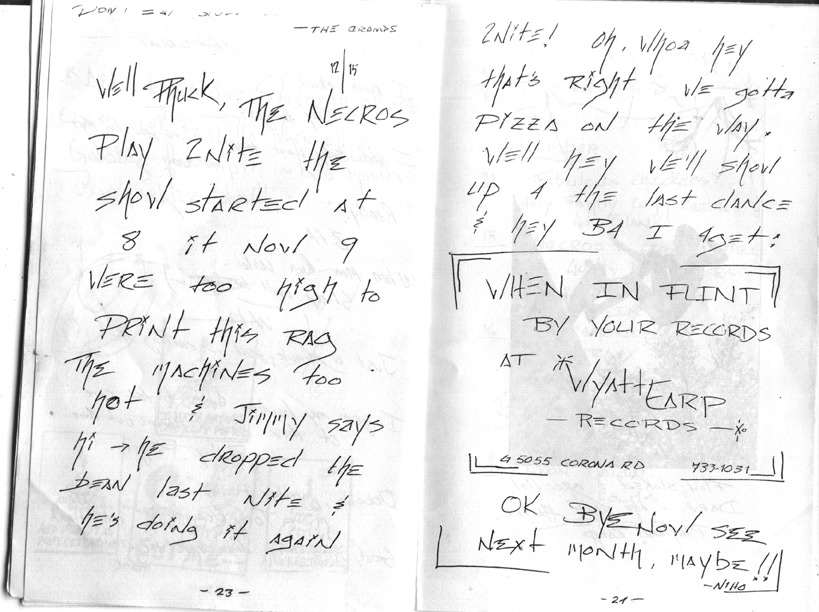 —THE CRAMPS
12|15
Well Phuck, THE NECROS
PLAY 2NITE the
show started AT
8 it Now 9
WERE too high to
PRINT this RAG
THE MACHINES too
hot & Jimmy says
hi → HE dropped the
BEAN last NITE &
he's doing it again
-23-
2NITE! Oh, whoa hey
that's Right we gotta
PIZZA ON the way.
Well hey we'll show
up 4 the last dance
& hey B4 I 4get:
WHEN IN FLINT
BY YOUR RECORDS
AT * Wyatt EARP
— RECORDS —*
G 5055 CORONA RD 733-1031
OK BYE Now SEE
NEXT MONTH, MAYBE!!
-NIHO
-24-